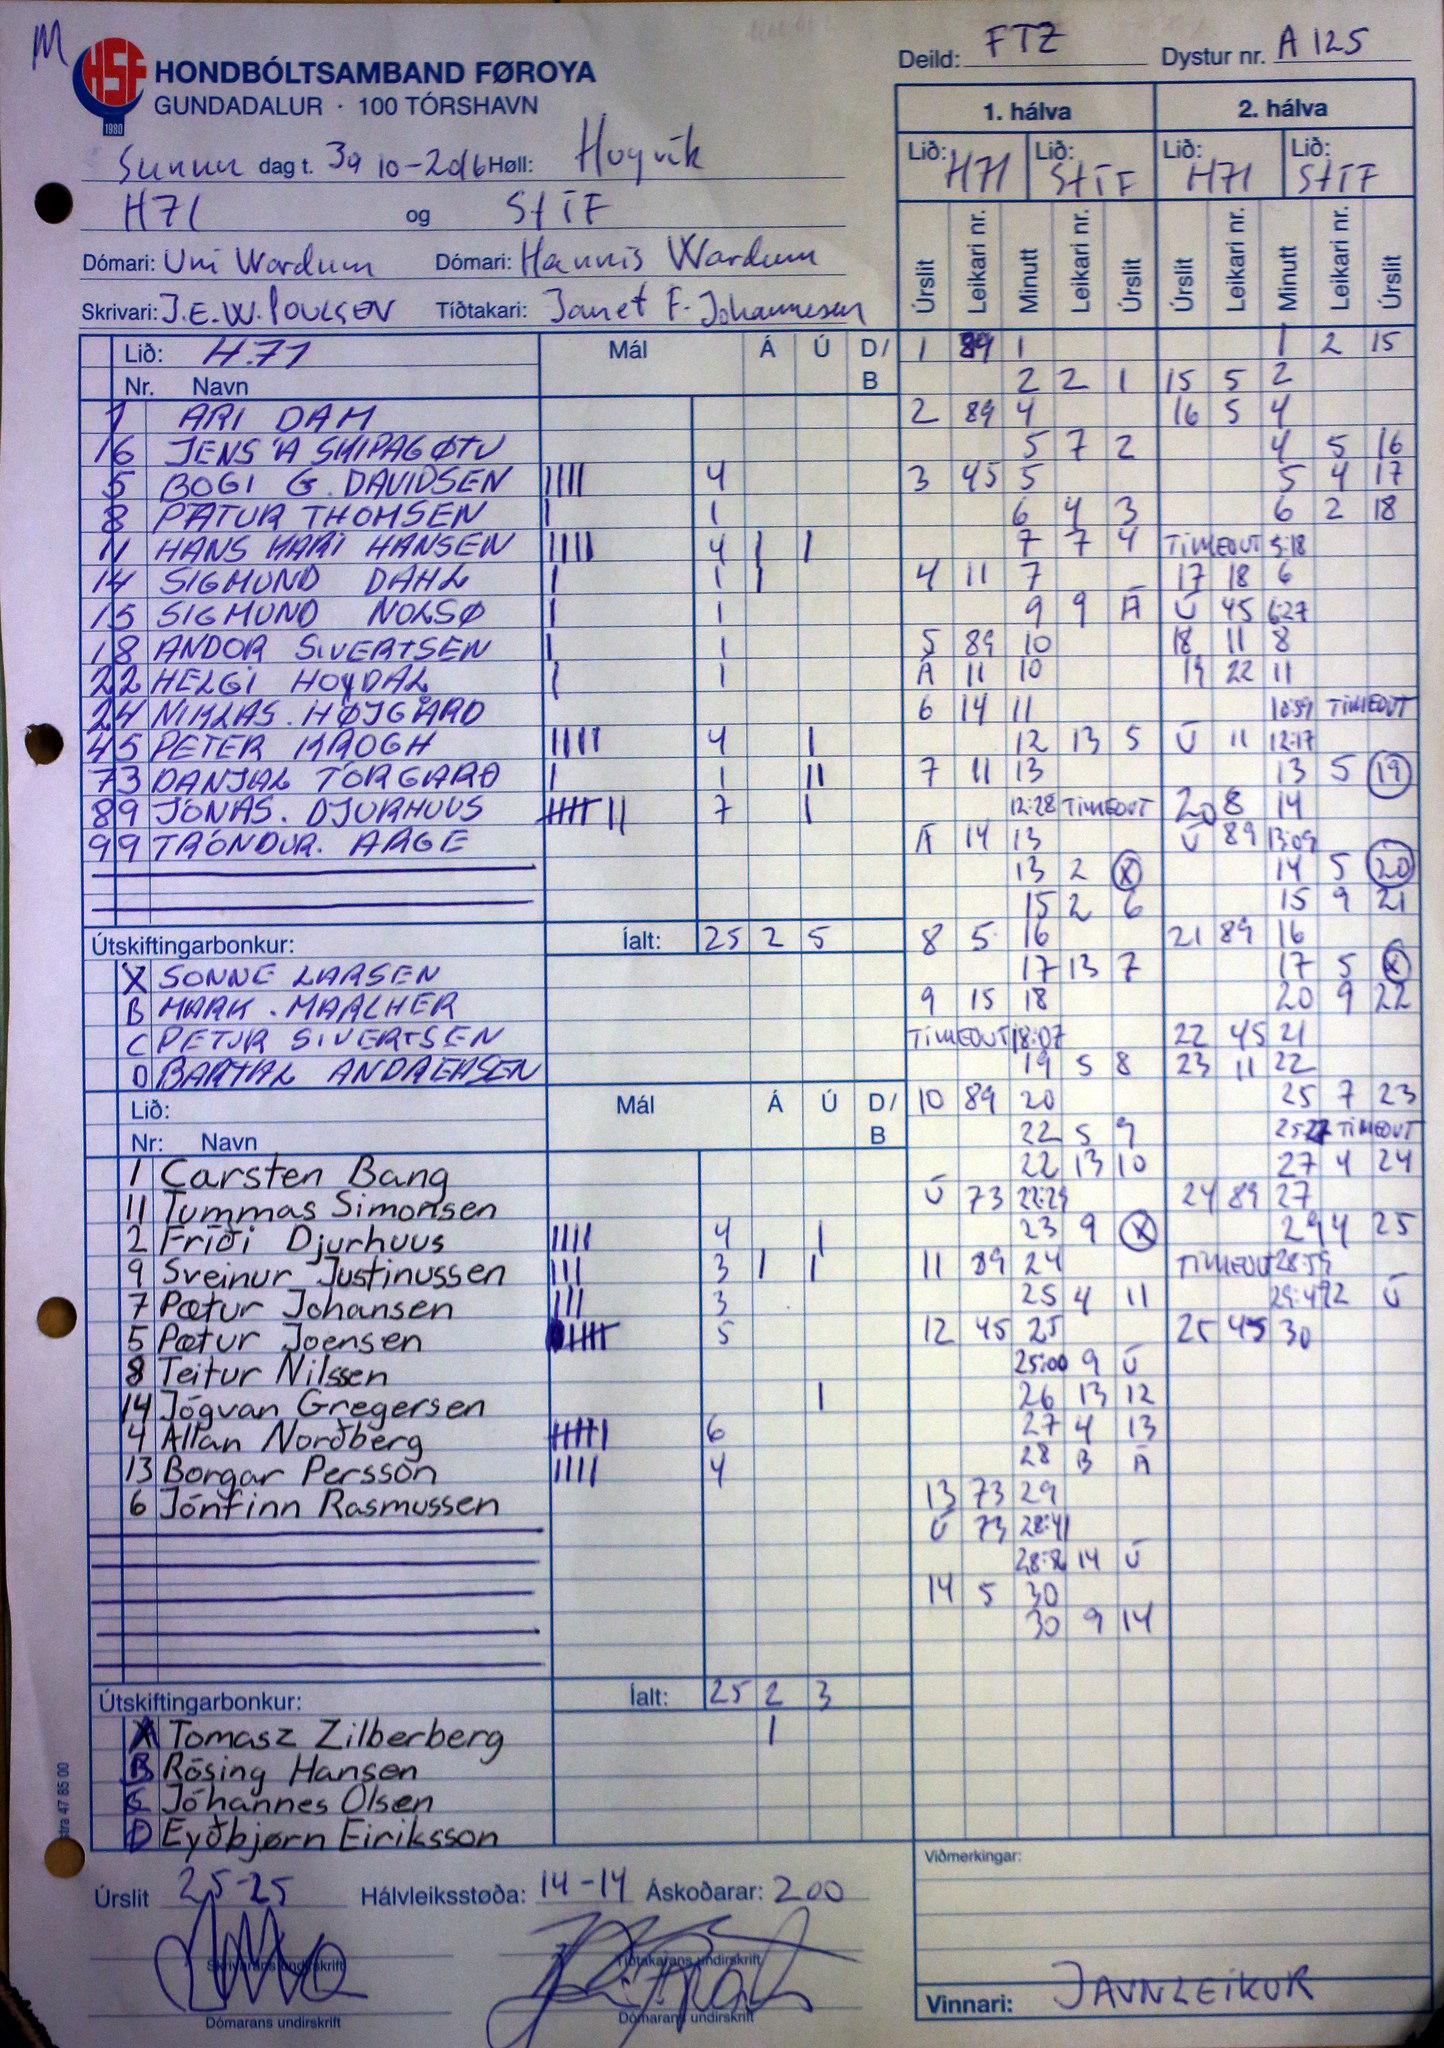 M
HSF
1980
HONDBÓLTSAMBAND FØROYA
GUNDADALUR · 100 TÓRSHAVN
Deild: FTZ Dystur nr. A 125
Sunnu dag t. 30 10-2016 Høll: Hoyvík
H71 og StÍF
Dómari: Uni Wardum Dómari: Hannis Wardum
Skrivari: J.E.W. POULSEN Tíðtakari: Janet F. Johannesen
1. hálva 2. hálva
Lið: H71 Lið: StÍF Lið: H71 Lið: StÍF
Úrslit Leikari nr. Minutt Leikari nr. Úrslit Úrslit Leikari nr. Minutt Leikari nr. Úrslit
Lið: H.71 Mál Á Ú D/B
Nr. Navn
1 ARI DAM
16 JENS Á SKIPAGØTU
5 BOGI G. DAVIDSEN IIII 4
8 PÆTUR THOMSEN I 1
11 HANS KARI HANSEN IIII 4 I I
14 SIGMUND DAHL I 1 I
15 SIGMUND NOLSØ I 1
18 ANDOR SIVERTSEN I 1
22 HELGI HOYDAL I 1
24 NIKLAS. HØJGÅRD
45 PETER KROGH IIII 4 I
73 DANJAL TORGARÐ I 1 II
89 JÓNAS. DJURHUUS IIIII II 7 I
99 TRÓNDUR. ARGE
Útskiftingarbonkur: Íalt: 25 2 5
X SONNE LARSEN
B MARK. MAALHER
C PETUR SIVERTSEN
D BARTAL ANDREASEN
Lið: Mál Á Ú D/B
Nr: Navn
1 Carsten Bang
11 Tummas Simonsen
2 Fríði Djurhuus IIII 4 I
9 Sveinur Justinussen III 3 I I
7 Pætur Johansen III 3
5 Pætur Joensen IIIII 5
8 Teitur Nilssen
14 Jógvan Gregersen I
4 Allan Norðberg IIIII I 6
13 Borgar Persson IIII 4
6 Jónfinn Rasmussen
Útskiftingarbonkur: Íalt: 25 2 3
A Tomasz Zilberberg I
B Rósing Hansen
C Jóhannes Olsen
D Eyðbjørn Eiriksson
1 89 1
2 2 1
2 89 4
5 7 2
3 45 5
6 4 3
7 7 4
4 11 7
9 9 Á
5 89 10
Á 11 10
6 14 11
12 13 5
7 11 13
12:28 TIMEOUT
Á 14 13
13 2 X
15 2 6
8 5 16
17 13 7
9 15 18
TIMEOUT 18:07
19 5 8
10 89 20
22 5 9
22 13 10
Ú 73 22:29
23 9 X
11 89 24
25 4 11
12 45 25
25:00 9 Ú
26 13 12
27 4 13
28 B Á
13 73 29
Ú 73 28:41
14 Ú
14 5 30
30 9 14
1 2 15
15 5 2
16 5 4
4 5 16
5 4 17
6 2 18
TIMEOUT 5:18
17 18 6
Ú 45 6:27
18 11 8
19 22 11
10:59 TIMEOUT
Ú 11 12:17
13 5 19
20 8 14
Ú 89 13:09
14 5 20
15 9 21
21 89 16
17 5 X
20 9 22
22 45 21
23 11 22
25 7 23
25:27 TIMEOUT
27 4 24
24 89 27
29 4 25
TIMEOUT 28:59
29:49 2 Ú
25 45 30
Úrslit 25-25 Hálvleiksstøða: 14-14 Áskoðarar: 200
Skrivarans undirskrift Tíðtakarans undirskrift
Dómarans undirskrift Dómarans undirskrift
Viðmerkingar:
Vinnari: JAVNLEIKUR
47 85 00